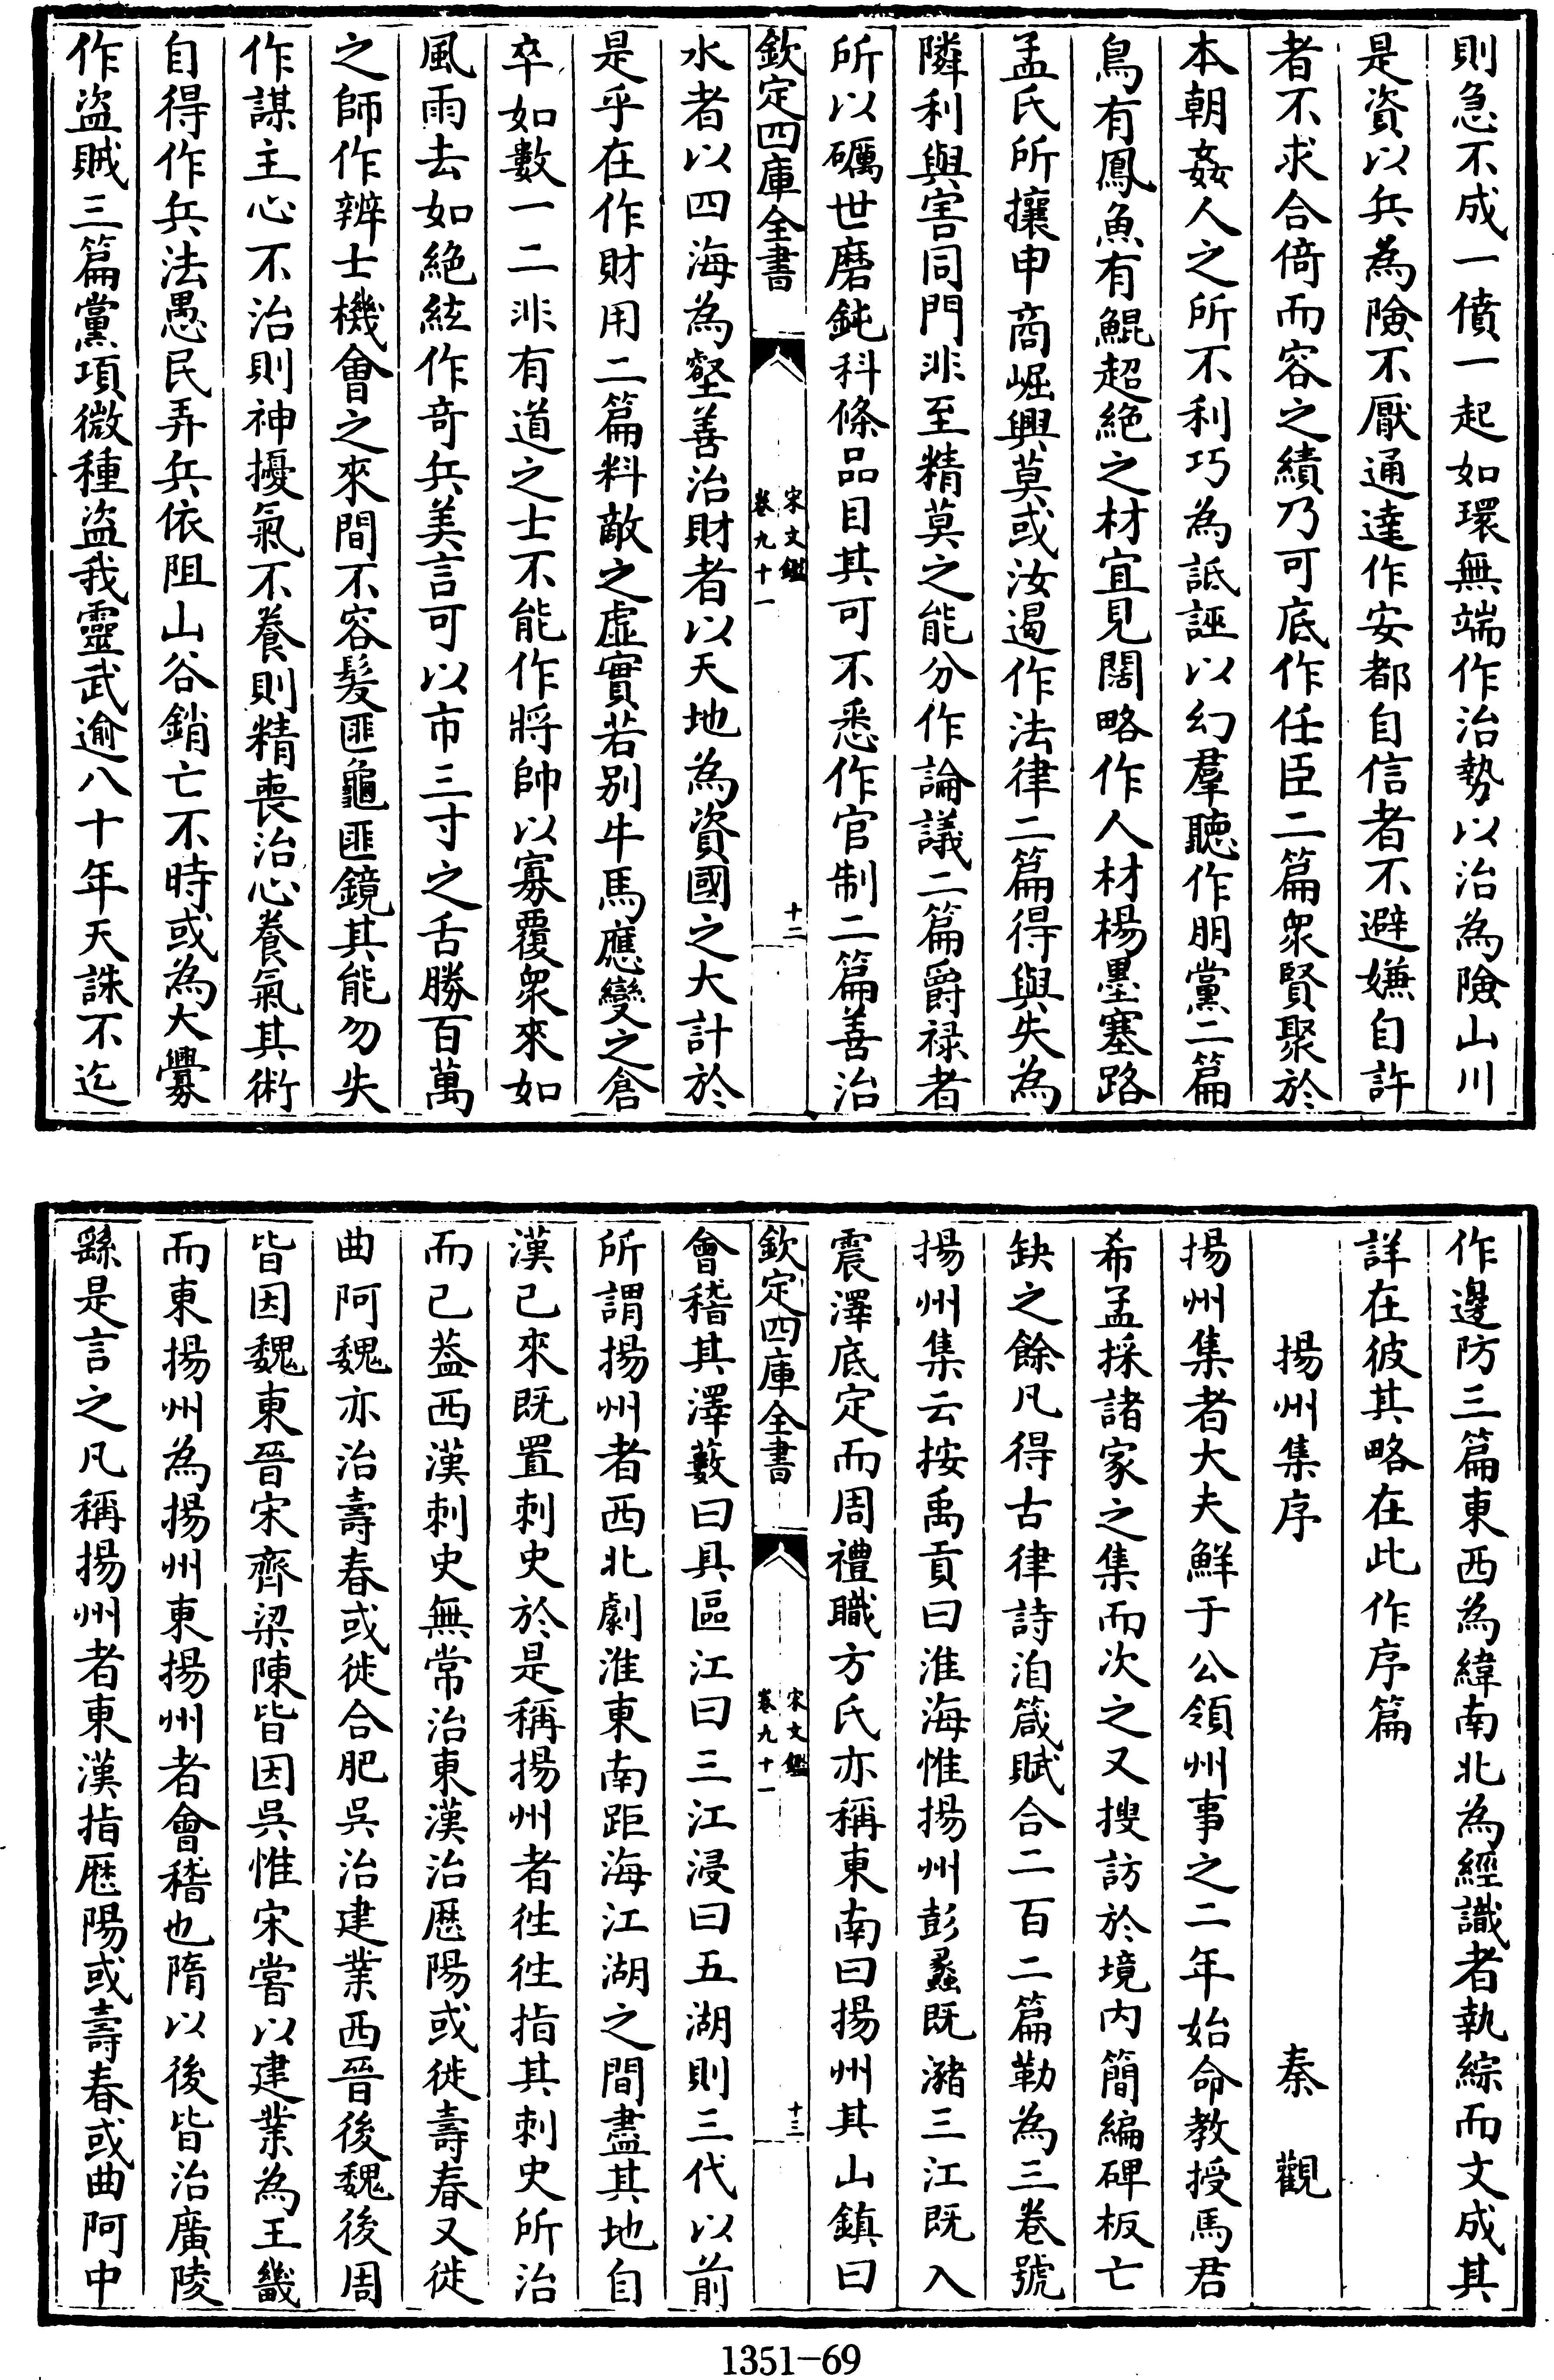 則急不成一僨一起如環無端作治勢以治為險山川
是資以兵為險不厭通達作安都自信者不避嫌自許
者不求合倚而容之績乃可底作任臣二篇衆賢聚於
本朝姦人之所不利巧為詆誣以幻羣聽作朋黨二篇
鳥有鳳魚有鯤超絶之材宜見闊略作人材楊墨塞路
孟氏所攘申商崛興莫或汝遏作法律二篇得與失為
隣利與害同門非至精莫之能分作論議二篇爵禄者
所以礪世磨鈍科條品目其可不悉作官制二篇善治
欽定四庫全書
宋文鑑
卷九十一
十二
水者以四海為壑善治財者以天地為資國之大計於
是乎在作財用二篇料敵之虚實若别牛馬應變之倉
卒如數一二非有道之士不能作將帥以寡覆衆來如
風雨去如絶絃作奇兵美言可以市三寸之舌勝百萬
之師作辨士機會之來間不容髮匪龜匪鏡其能勿失
作謀主心不治則神擾氣不養則精喪治心養氣其術
自得作兵法愚民弄兵依阻山谷銷亡不時或為大釁
作盜賊三篇黨項微種盜我靈武逾八十年天誅不迄
作邊防三篇東西為緯南北為經識者執綜而文成其
詳在彼其略在此作序篇
揚州集序 秦觀
揚州集者大夫鮮于公領州事之二年始命教授馬君
希孟採諸家之集而次之又搜訪於境内簡編碑板亡
缺之餘凡得古律詩洎箴賦合二百二篇勒為三卷號
揚州集云按禹貢曰淮海惟揚州彭蠡既瀦三江既入
震澤底定而周禮職方氏亦稱東南曰揚州其山鎮曰
欽定四庫全書
宋文鑑
卷九十一
十三
會稽其澤藪曰具區江曰三江浸曰五湖則三代以前
所謂揚州者西北劇淮東南距海江湖之間盡其地自
漢已來既置刺史於是稱揚州者徃徃指其刺史所治
而已葢西漢刺史無常治東漢治厯陽或徙壽春又徙
曲阿魏亦治壽春或徙合肥吳治建業西晉後魏後周
皆因魏東晉宋齊梁陳皆因吳惟宋嘗以建業為王畿
而東揚州為揚州東揚州者會稽也隋以後皆治廣陵
繇是言之凡稱揚州者東漢指厯陽或壽春或曲阿中
1351-69